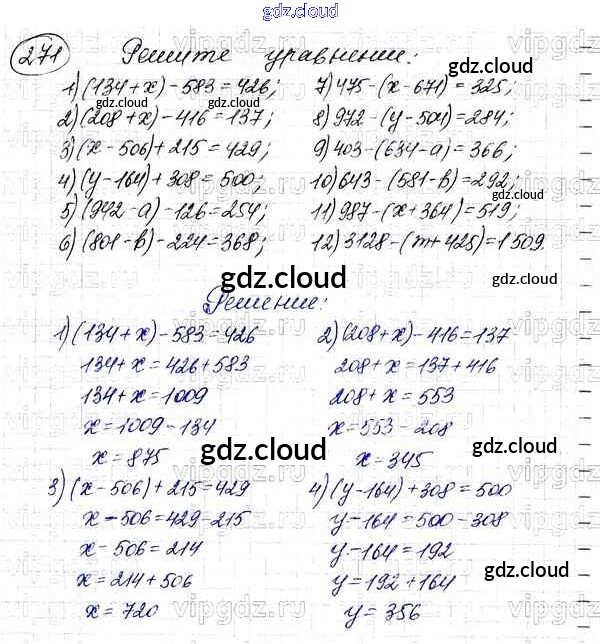 gdz.cloud
271 Решите уравнения:
1) (134+x)-583=426; 7) 475-(x-671)=325;
gdz.cloud gdz.cloud gdz.cloud
2) (208+x)-416=137; 8) 972-(y-504)=284;
3) (x-506)+215=429; 9) 403-(634-a)=366;
4) (y-164)+308=500; 10) 643-(581-b)=292;
gdz.cloud
5) (942-a)-126=254; 11) 987-(x+364)=519;
6) (801-b)-224=368; 12) 3128-(m+425)=1509.
gdz.cloud
Решение:
gdz.cloud
1) (134+x)-583=426
134+x=426+583
134+x=1009
x=1009-134
x=875
2) (208+x)-416=137
208+x=137+416
208+x=553
x=553-208
x=345
gdz.cloud gdz.cloud
3) (x-506)+215=429
x-506=429-215
x-506=214
x=214+506
x=720
4) (y-164)+308=500
y-164=500-308
y-164=192
y=192+164
y=356
gdz.cloud
gdz.cloud
vipgdz.com